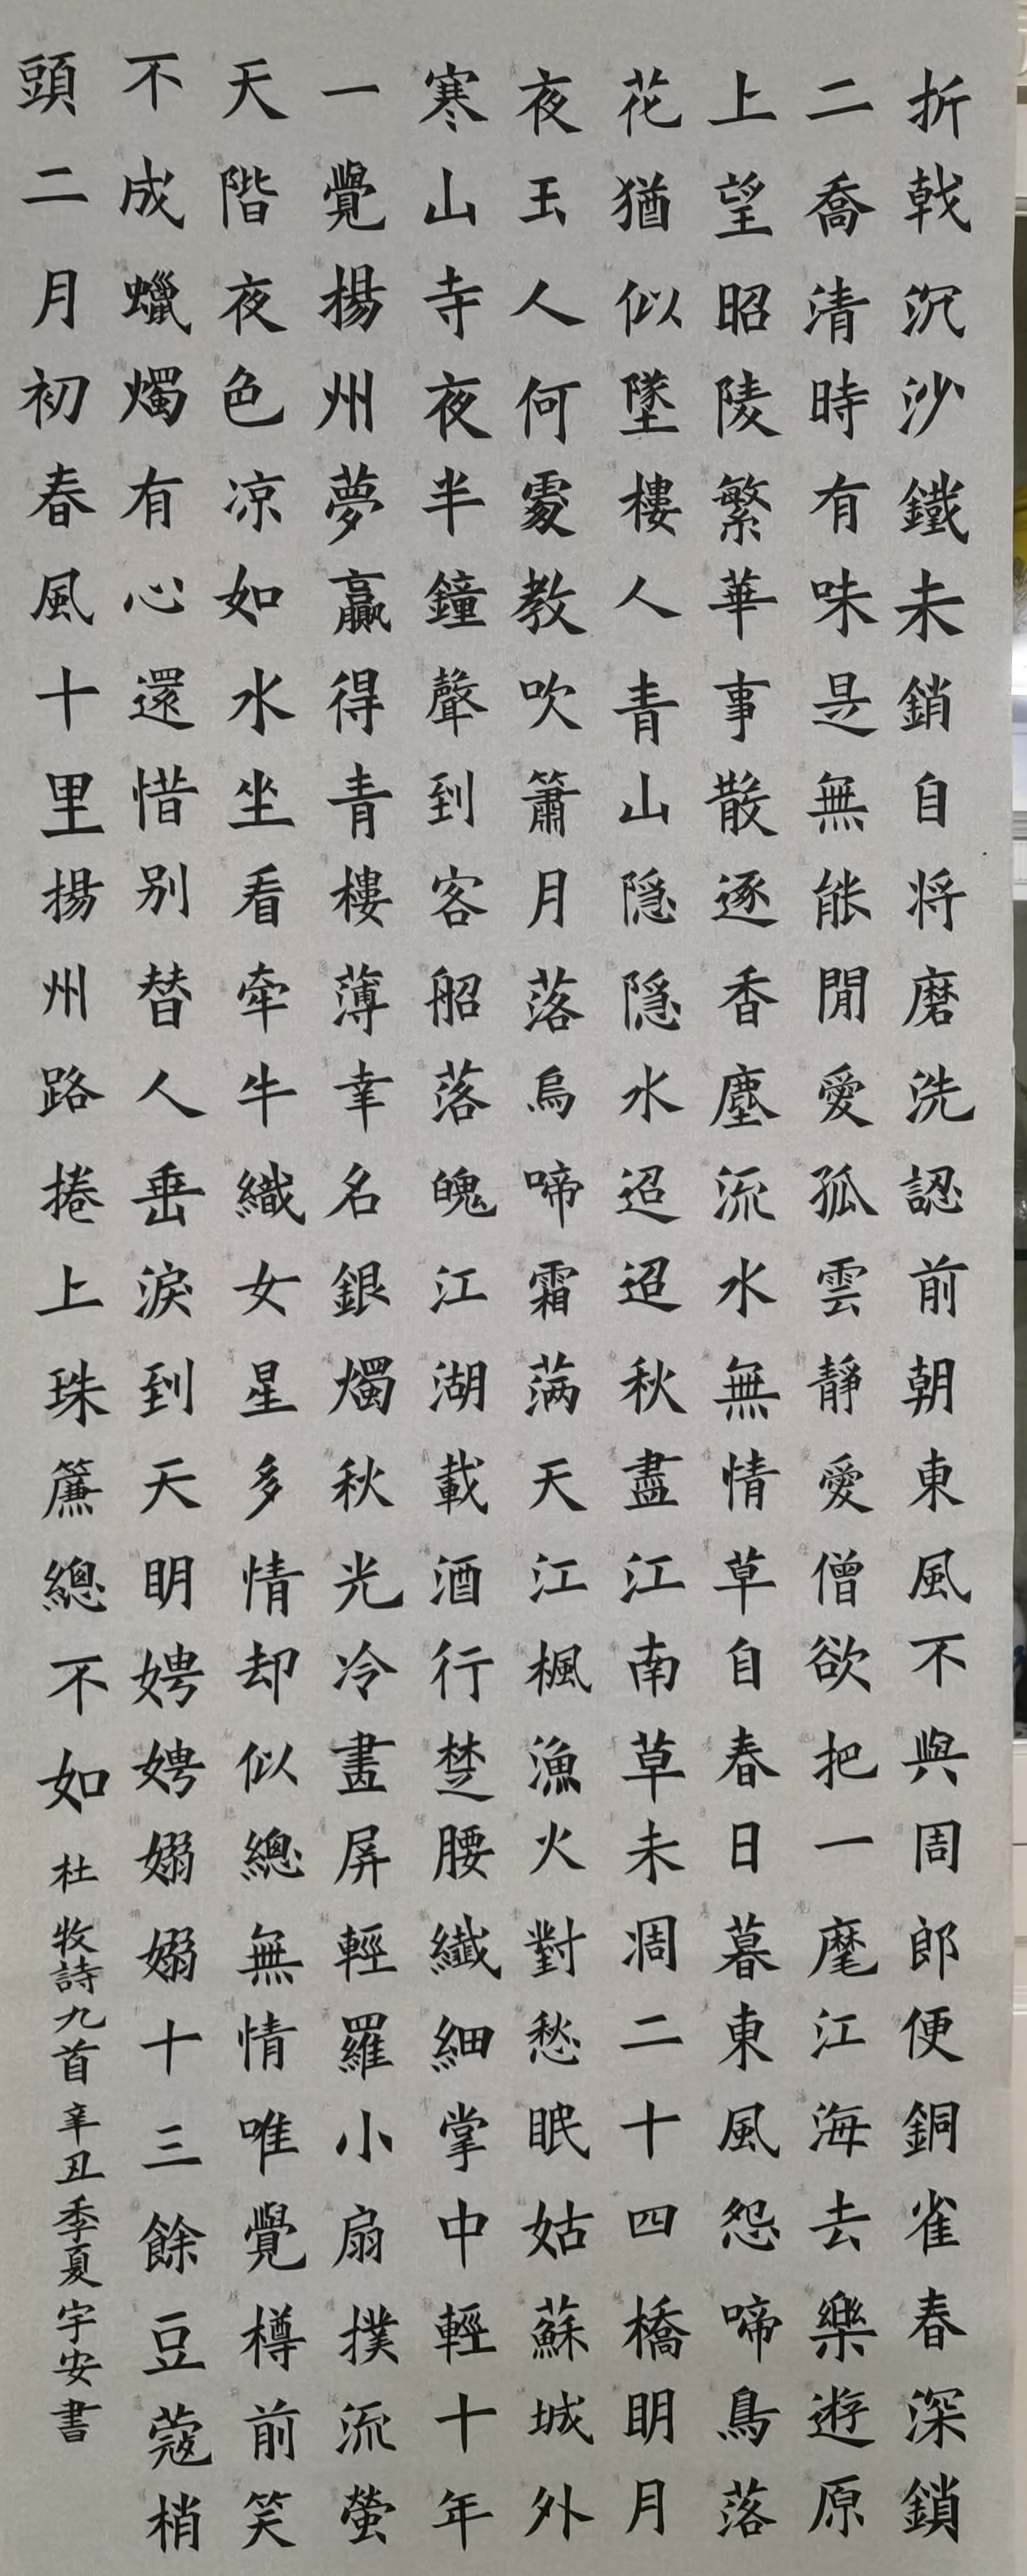 折戟沉沙鐵未銷自将磨洗認前朝東風不與周郎便銅雀春深鎖
二喬清時有味是無能閒愛孤雲靜愛僧欲把一麾江海去樂遊原
上望昭陵繁華事散逐香塵流水無情草自春日暮東風怨啼鳥落
花猶似墜樓人青山隐隐水迢迢秋盡江南草未凋二十四橋明月
夜玉人何處教吹簫月落烏啼霜满天江楓漁火對愁眠姑蘇城外
寒山寺夜半鐘聲到客船落魄江湖載酒行楚腰纖細掌中輕十年
一覺揚州夢贏得青樓薄幸名銀燭秋光冷畫屏輕羅小扇撲流螢
天階夜色凉如水坐看牵牛織女星多情却似總無情唯覺樽前笑
不成蠟燭有心還惜别替人垂淚到天明娉娉嫋嫋十三餘豆蔻梢
頭二月初春風十里揚州路捲上珠簾總不如 杜牧詩九首 辛丑季夏宇安書